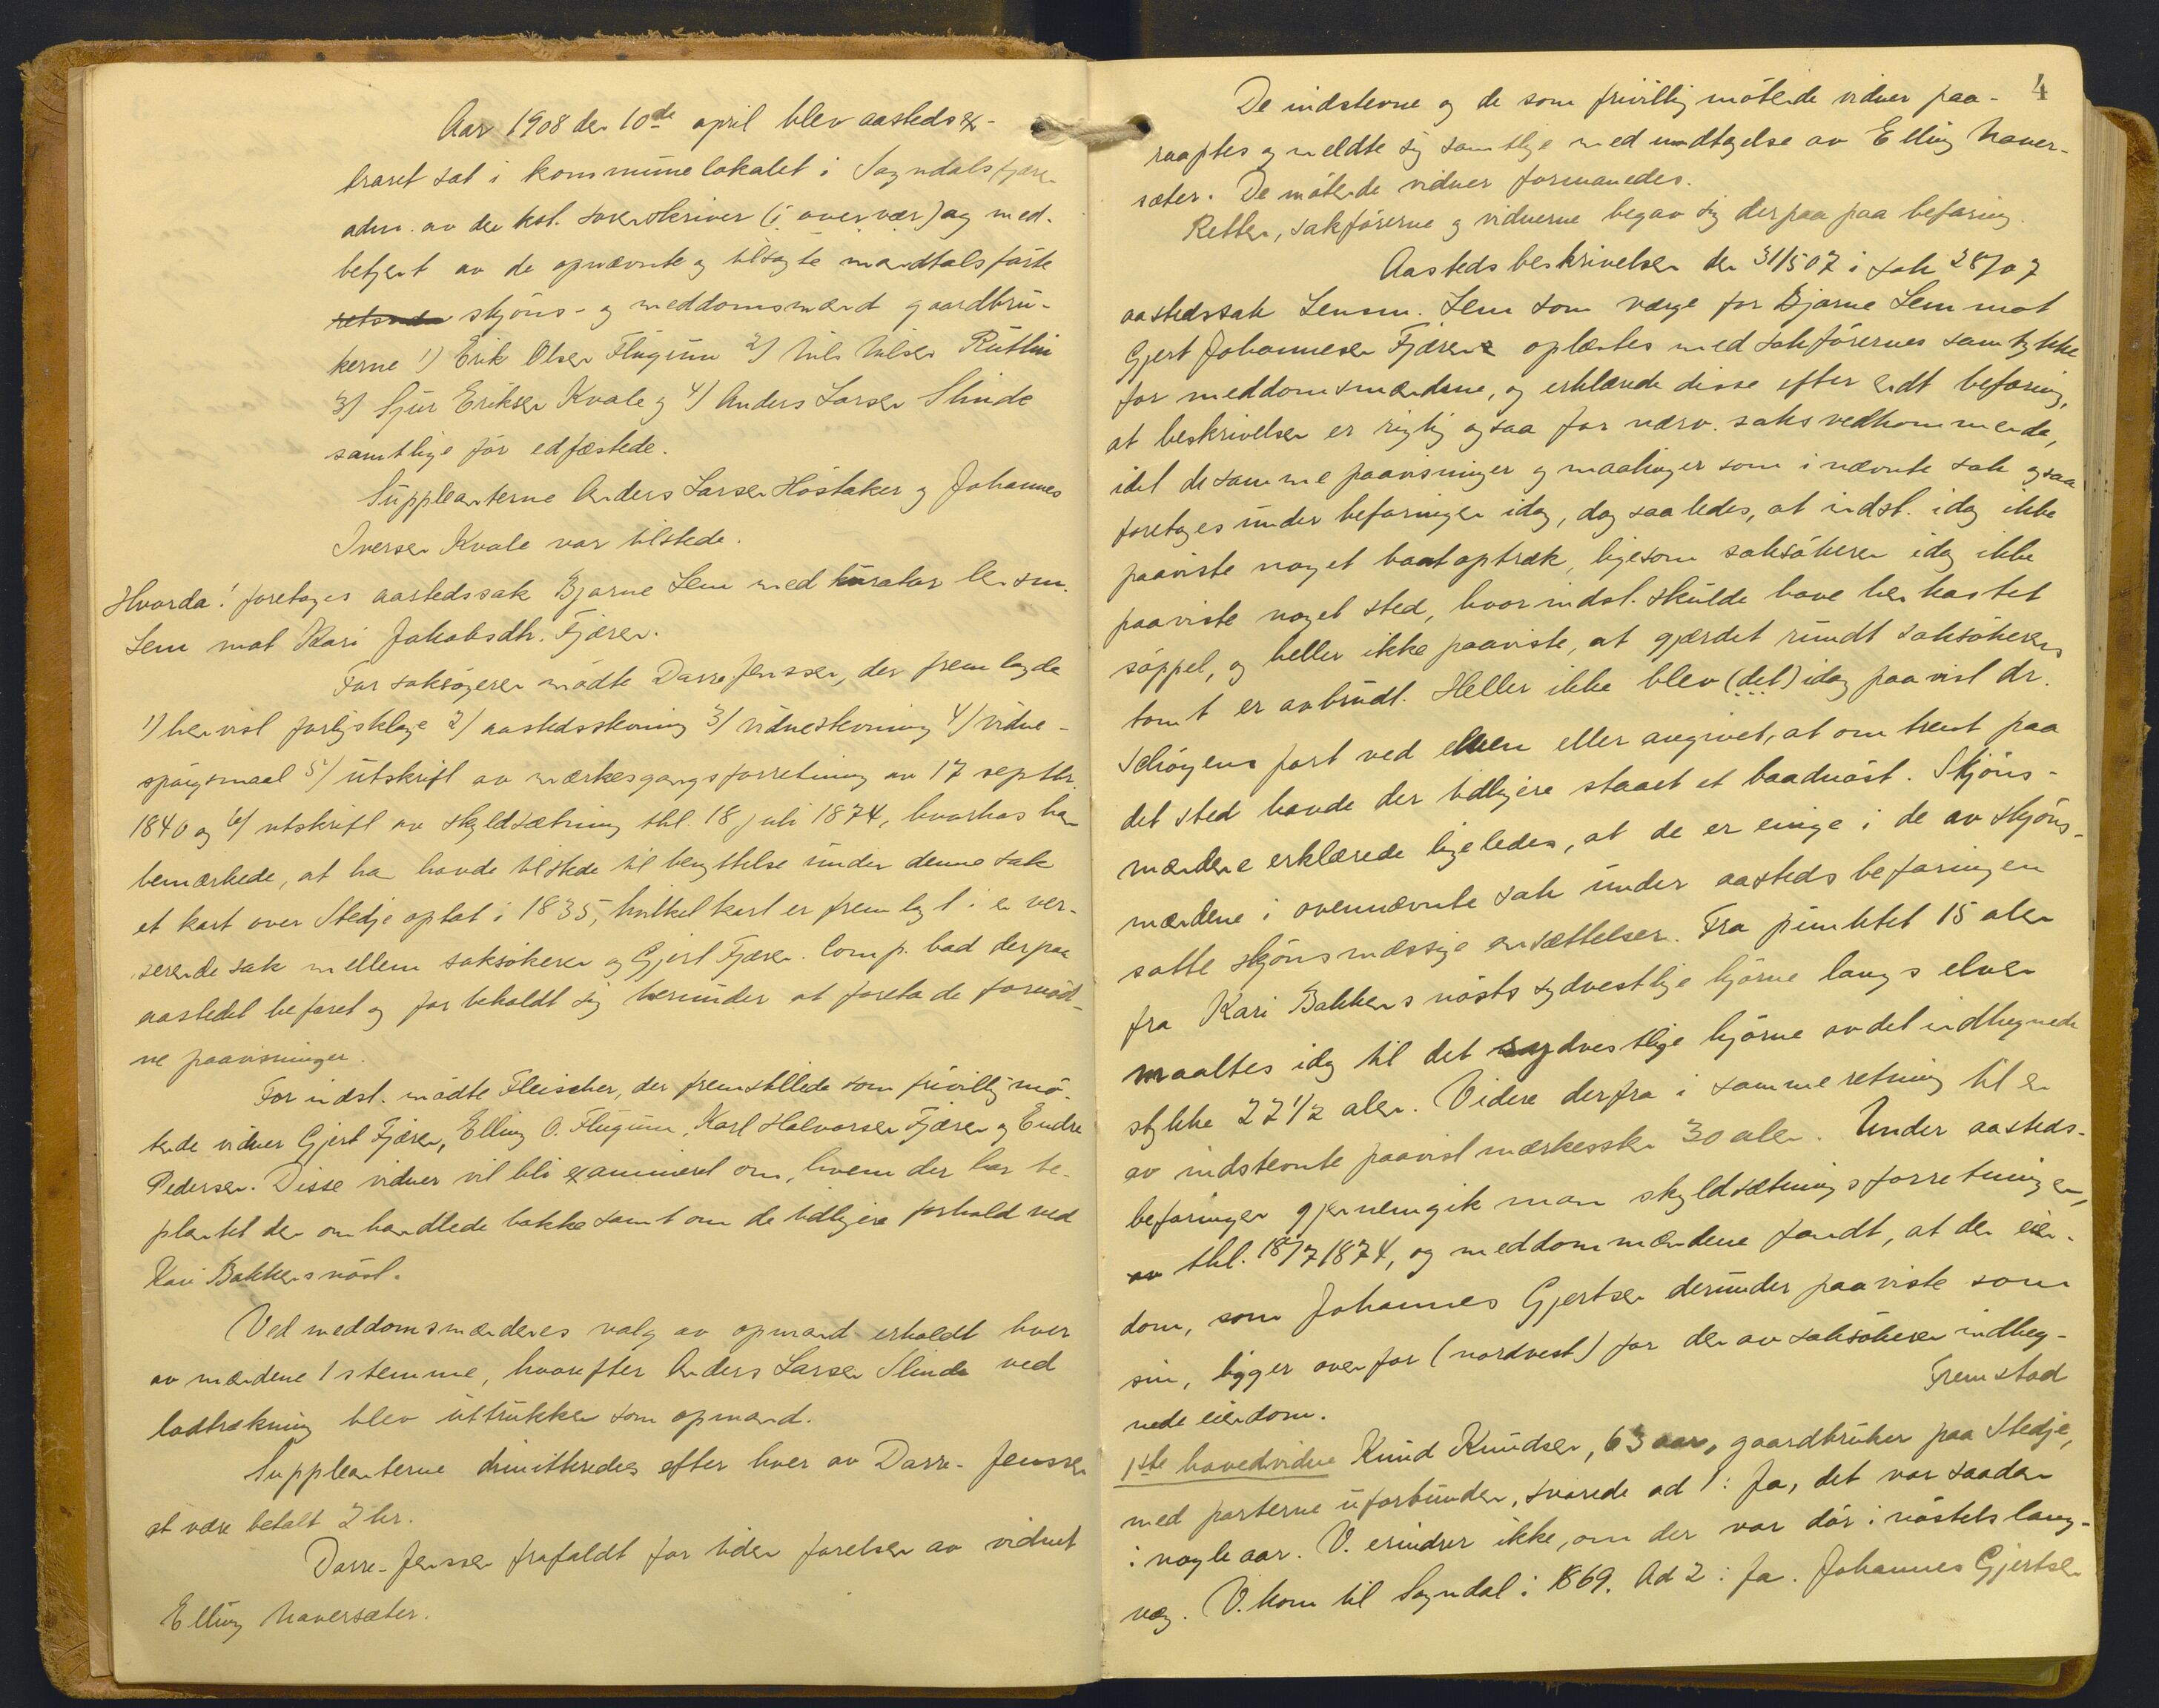 Aar 1908 den 10de april blev aastedsex-
traret sat i kommunelokalet i Sogndalsfjæren
adm. av den kst. sorenskriver (i overvær) og med-
betjent av de opnævnte og tilsagte mandtalsførte
retsvidn skjöns- og meddomsmænd gaardbru-
kerne 1) Erik Olsen Flugum 2) Nils Nilsen Rutlin
3) Sjur Eriksen Kvale og 4) Anders Larsen Slinde
samtlige før edfæstede.
Suppleanterne Anders Larsen Høstaker og Johannes
Iversen Kvale var tilstede.
Hvorda! foretages aastedssak Bjarne Lem med kurator lensm.
Lem mot Kari Jakobsdtr. Fjæren.
For saksøgeren mødte Darre-Jenssen, der fremlagde
1) henvist forliksklage 2) aastedsstevning 3) vidnestevning 4) vidne-
spørgsmaal 5) utskrift av merkesgangsforretning av 17 septbr.
1840 og 6) utskrift av skyldsætning thl. 18 juli 1874, hvorhos han
bemærkede, at han havde tilstede til benyttelse under denne sak
et kart over Stedje optat i 1835, hvilket kart er fremlagt i en ver-
serende sak mellem saksøkeren og Gjert Fjæren. Comp. bad derpaa
aastedet befaret og forbeholdt sig herunder at foreta de fornødt-
ne paavisninger.
For indst. mødte Fleischer, der fremstillede som frivillig mö-
tende vidner Gjert Fjæren, Elling O. Flugum, Karl Halvorsen Fjæren og Endre
Pedersen. Disse vidner vil bli examineret om, hvem der har be-
plantet den omhandlede bakke samt om de tidligere forhold ved
Kari Bakkens nöst.
Ved meddomsmændenes valg av opmand erholdt hver
av mændene 1 stemme, hvorefter Anders Larsen Slinde ved
lodtrækning blev uttrukken som opmand.
Suppleanterne dimitteredes efter hver av Darre-Jenssen
at være betalt 2 kr.
Darre-Jenssen frafaldt for tiden førelsen av vidnet
Elling Naversæter.
4
De indstevne og de som frivillig mötende vidner paa-
raaptes og meldte sig samtlige med undtagelse av Elling Naver-
sæter. De mötende vidner formanedes.
Retten, sakförerne og vidnerne begav sig derpaa paa befaring.
Aastedsbeskrivelsen den 31/5 07 i sak 28/07
aastedssak Lensm. Lem som værge for Bjarne Lem mot
Gjert Johannesen Fjæren oplæstes med sakförernes samtykke
for meddomsmændene, og erklærede disse efter endt befaring,
at beskrivelsen er rigtig ogsaa for nærv. saks vedkommende,
idet de samme paavisninger og maalinger som i nævnte sak ogsaa
foretoges under befaringen idag, dog saaledes, at indst. idag ikke
paaviste noget baatoptræk, ligesom saksökeren idag ikke
paaviste noget sted, hvor indst. skulde have henkastet
söppel, og heller ikke paaviste, at gjærdet rundt saksökerens
tomt er avbrudt. Heller ikke blev (det) idag paavist dr.
Schöyens fort ved elven eller angivet, at omtrent paa
det sted havde der tidligere staaet et baadnöst. Skjöns-
mændene erklærede ligeledes, at de er enige i de av skjöns-
mændene i ovennævnte sak under aastedsbefaringen
satte skjönsmæssige ansættelser. Fra punktet 15 alen
fra Kari Bakkens nösts sydvestlige hjörne langs elven
maaltes idag til det sydvestlige hjörne av det indhegnede
stykke 22 1/2 alen. Videre derfra i samme retning til en
av indstevnte paavist mærkessten 30 alen. Under aasteds-
befaringen gjennemgik man skyldsætningsforretningen,
av thl. 18/7 1874, og meddommændene fandt, at den eien-
dom, som Johannes Gjertsen derunder paaviste som
sin, ligger ovenfor (nordvest) for den av saksökeren indheg-
nede eiendom.
Fremstod
1ste hovedvidne Knud Knudsen, 63 aar, gaardbruker paa Stedje,
med parterne uforbunden, svarede ad 1: Ja, det var saadan
i nogle aar. V. erindrer ikke, om der var dör i nöstets lang-
væg. V. kom til Sogndal i 1869. Ad 2: Ja. Johannes Gjertsen